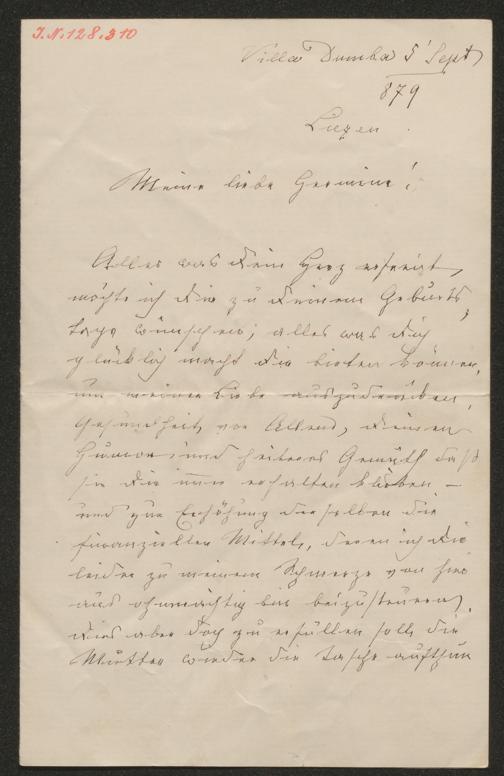 I.N. 128.310
Villa Dumba 5 Sept
879
Liezen.
Meine liebe Hermine!
Alles was Dein Herz erfreut,
möchte ich Dir zu Deinem Geburts,
tage wünschen; alles was Dich
glücklich macht Dir bieten können,
um meine Liebe auszudrücken,
Gesundheit vor Allem, Deinen
Humor und heiteres Gemüth daß
sie Dir immer erhalten bleiben –
und zur Erhöhung derselben die
finanziellen Mittel, deren ich Dir
leider zu meinem Schmerze von hier
aus ohnmächtig bin beizusteuern,
dies aber doch zu erfüllen soll die
Mutter wieder die Tasche aufthun